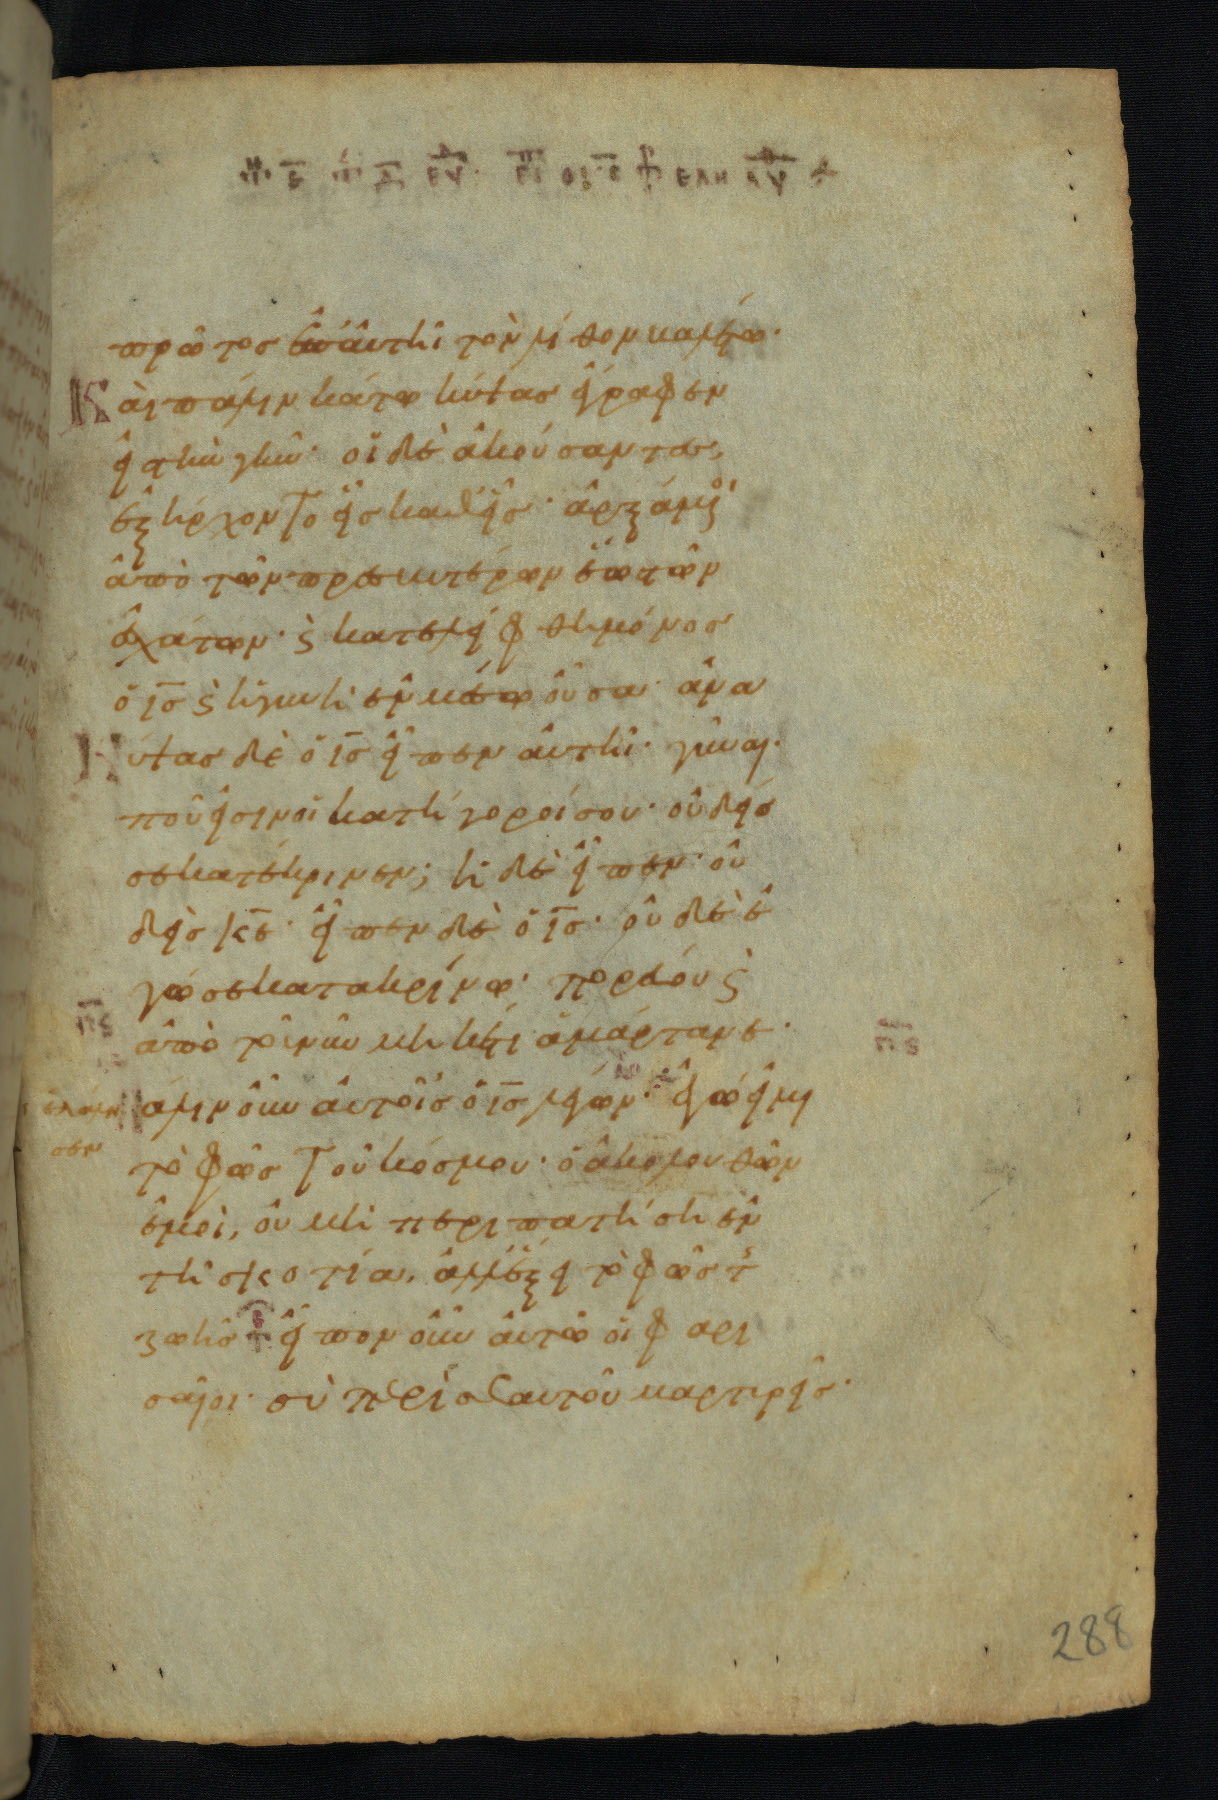 πρῶτος ἐπ' ἀυτὴ τὸν λίθον βαλέτω·
Καὶ πάλιν κάτω κύψας ἔγραφεν
εἰς τὴν γῆν· οἱ δὲ ἀκούσαντες,
ἐξήρχοντο εἷς καθεῖς· ἀρξάμενοι
ἀπὸ τῶν πρεσβυτέρων ἕως τῶν
ἐσχάτων· ϛ κατελείφθη μόνος
ὁ ις ϛ ἡ γυνὴ ἐν μέσω οὖσα· ἀνα
κύψας δὲ ὁ ις εἶπεν ἀυτὴ· γύναι·
ποῦ εἰσιν οἱ κατήγοροί σου· οὐδείς
σε κατέκρινεν; ἡ δὲ εἶπεν· οὐ
δεὶς κε· εἶπεν δὲ ὁ ις· οὐδὲ ἐ
γώ σε κατακρίνω· πορεύου ϛ
ἀπὸ τοῦ νῦν μηκέτι ἁμάρτανε·
Πάλιν οὖν ἀυτοῖς ὁ ις λέγων· ἐγώ εἰμι
ἐλάλη
σεν
τὸ φῶς τοῦ κόσμου· ὁ ἀκολουθῶν
ἐμοὶ, οὐ μὴ περιπατήση ἐν
τῆ σκοτία, ἀλλ' ἕξει τὸ φῶς τῆς
ζωῆς εἶπον οὖν ἀυτῶ οἱ φαρι
σαῖοι· σὺ περὶ σεαυτοῦ μαρτυρεῖς·
288